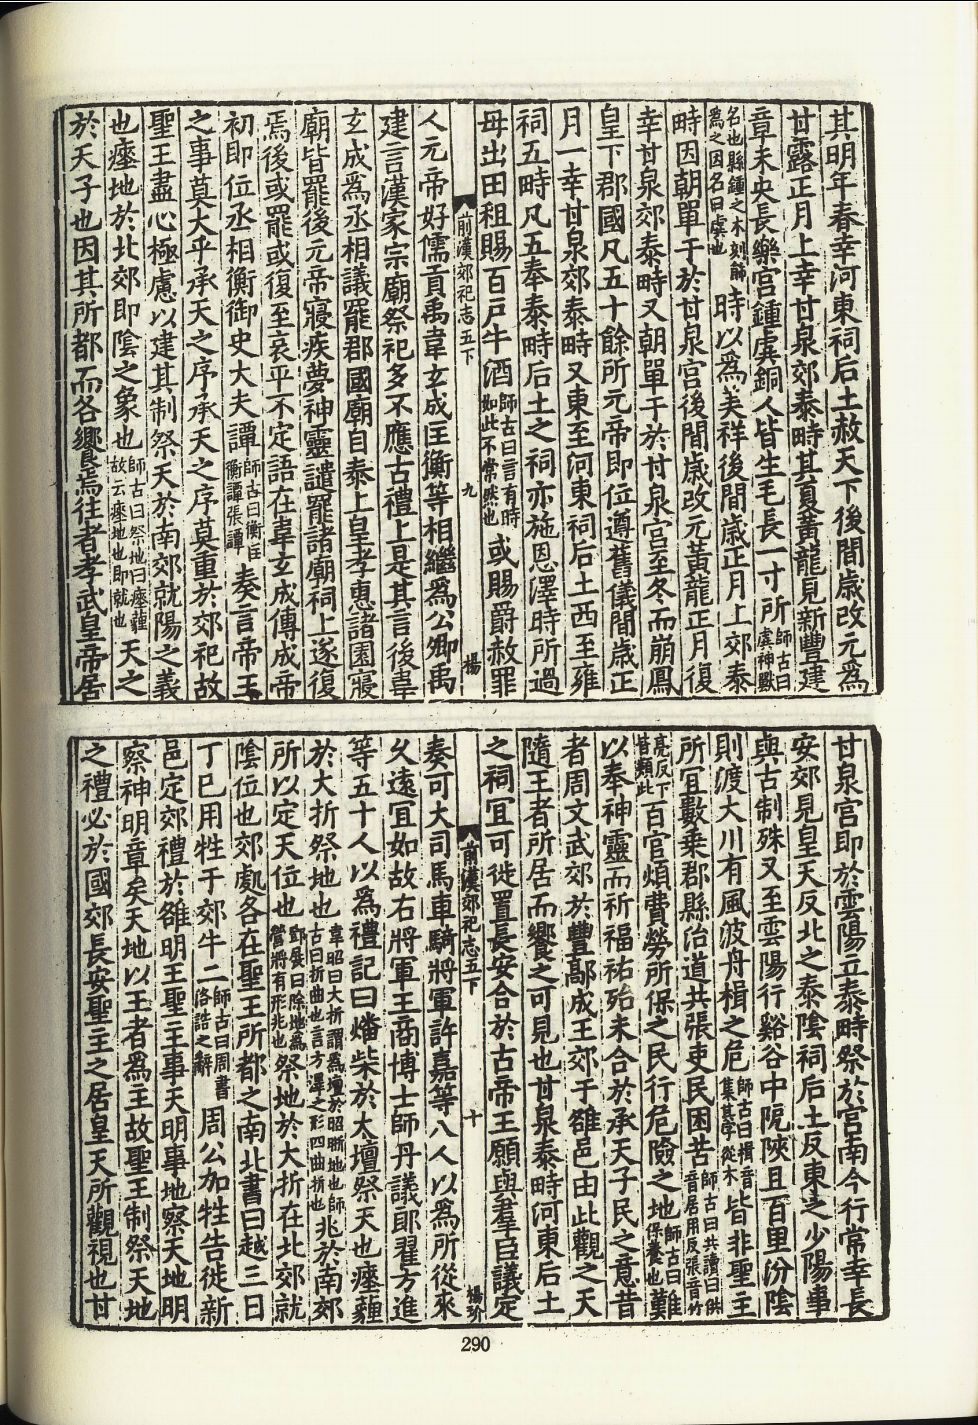 其明年春幸河東祠后土赦天下後間歲改元爲
甘露正月上幸甘泉郊泰畤其夏黃龍見新豐建
章未央長樂宮鍾虡銅人皆生毛長一寸所師古曰虡神獸
名也縣鍾之木刻飾爲之因名曰虡也時以爲美祥後間歲正月上郊泰
畤因朝單于於甘泉宮後間歲改元黃龍正月復
幸甘泉郊泰畤又朝單于於甘泉宮至冬而崩鳳
皇下郡國凡五十餘所元帝即位遵舊儀間歲正
月一幸甘泉郊泰畤又東至河東祠后土西至雍
祠五畤凡五奉泰畤后土之祠亦施恩澤時所過
毋出田租賜百戶牛酒師古曰言有時如此不常然也或賜爵赦罪
前漢郊祀志五下 九 楊
人元帝好儒貢禹韋玄成匡衡等相繼爲公卿禹
建言漢家宗廟祭祀多不應古禮上是其言後韋
玄成爲丞相議罷郡國廟自泰上皇孝惠諸園寢
廟皆罷後元帝寢疾夢神靈譴罷諸廟祠上遂復
焉後或罷或復至哀平不定語在韋玄成傳成帝
初即位丞相衡御史大夫譚師古曰衡匡衡譚張譚奏言帝王
之事莫大乎承天之序承天之序莫重於郊祀故
聖王盡心極慮以建其制祭天於南郊就陽之義
也瘞地於北郊即陰之象也師古曰祭地曰瘞薶故云瘞地也即就也天之
於天子也因其所都而各饗焉往者孝武皇帝居
甘泉宮即於雲陽立泰畤祭於宮南今行常幸長
安郊見皇天反北之泰陰祠后土反東之少陽事
與古制殊又至雲陽行谿谷中阸陜且百里汾陰
則渡大川有風波舟楫之危師古曰楫音集其字從木皆非聖主
所宜數乘郡縣治道共張吏民困苦師古曰共讀曰供音居用反張音竹
亮反下皆類此百官煩費勞所保之民行危險之地師古曰保養也難
以奉神靈而祈福祐殆未合於承天子民之意昔
者周文武郊於豐鄗成王郊于雒邑由此觀之天
隨王者所居而饗之可見也甘泉泰畤河東后土
之祠宜可徙置長安合於古帝王願與羣臣議定
前漢郊祀志五下 十 楊玠
奏可大司馬車騎將軍許嘉等八人以爲所從來
久遠宜如故右將軍王商博士師丹議郎翟方進
等五十人以爲禮記曰燔柴於太壇祭天也瘞薶
於大折祭地也韋昭曰大折謂爲壇於昭晰地也師古曰折曲也言方澤之形四曲折也兆於南郊
所以定天位也鄧展曰除地爲營將有形兆也祭地於大折在北郊就
陰位也郊處各在聖王所都之南北書曰越三日
丁巳用牲于郊牛二師古曰周書洛誥之辭周公加牲告徙新
邑定郊禮於雒明王聖主事天明事地察天地明
察神明章矣天地以王者爲主故聖王制祭天地
之禮必於國郊長安聖主之居皇天所觀視也甘
290